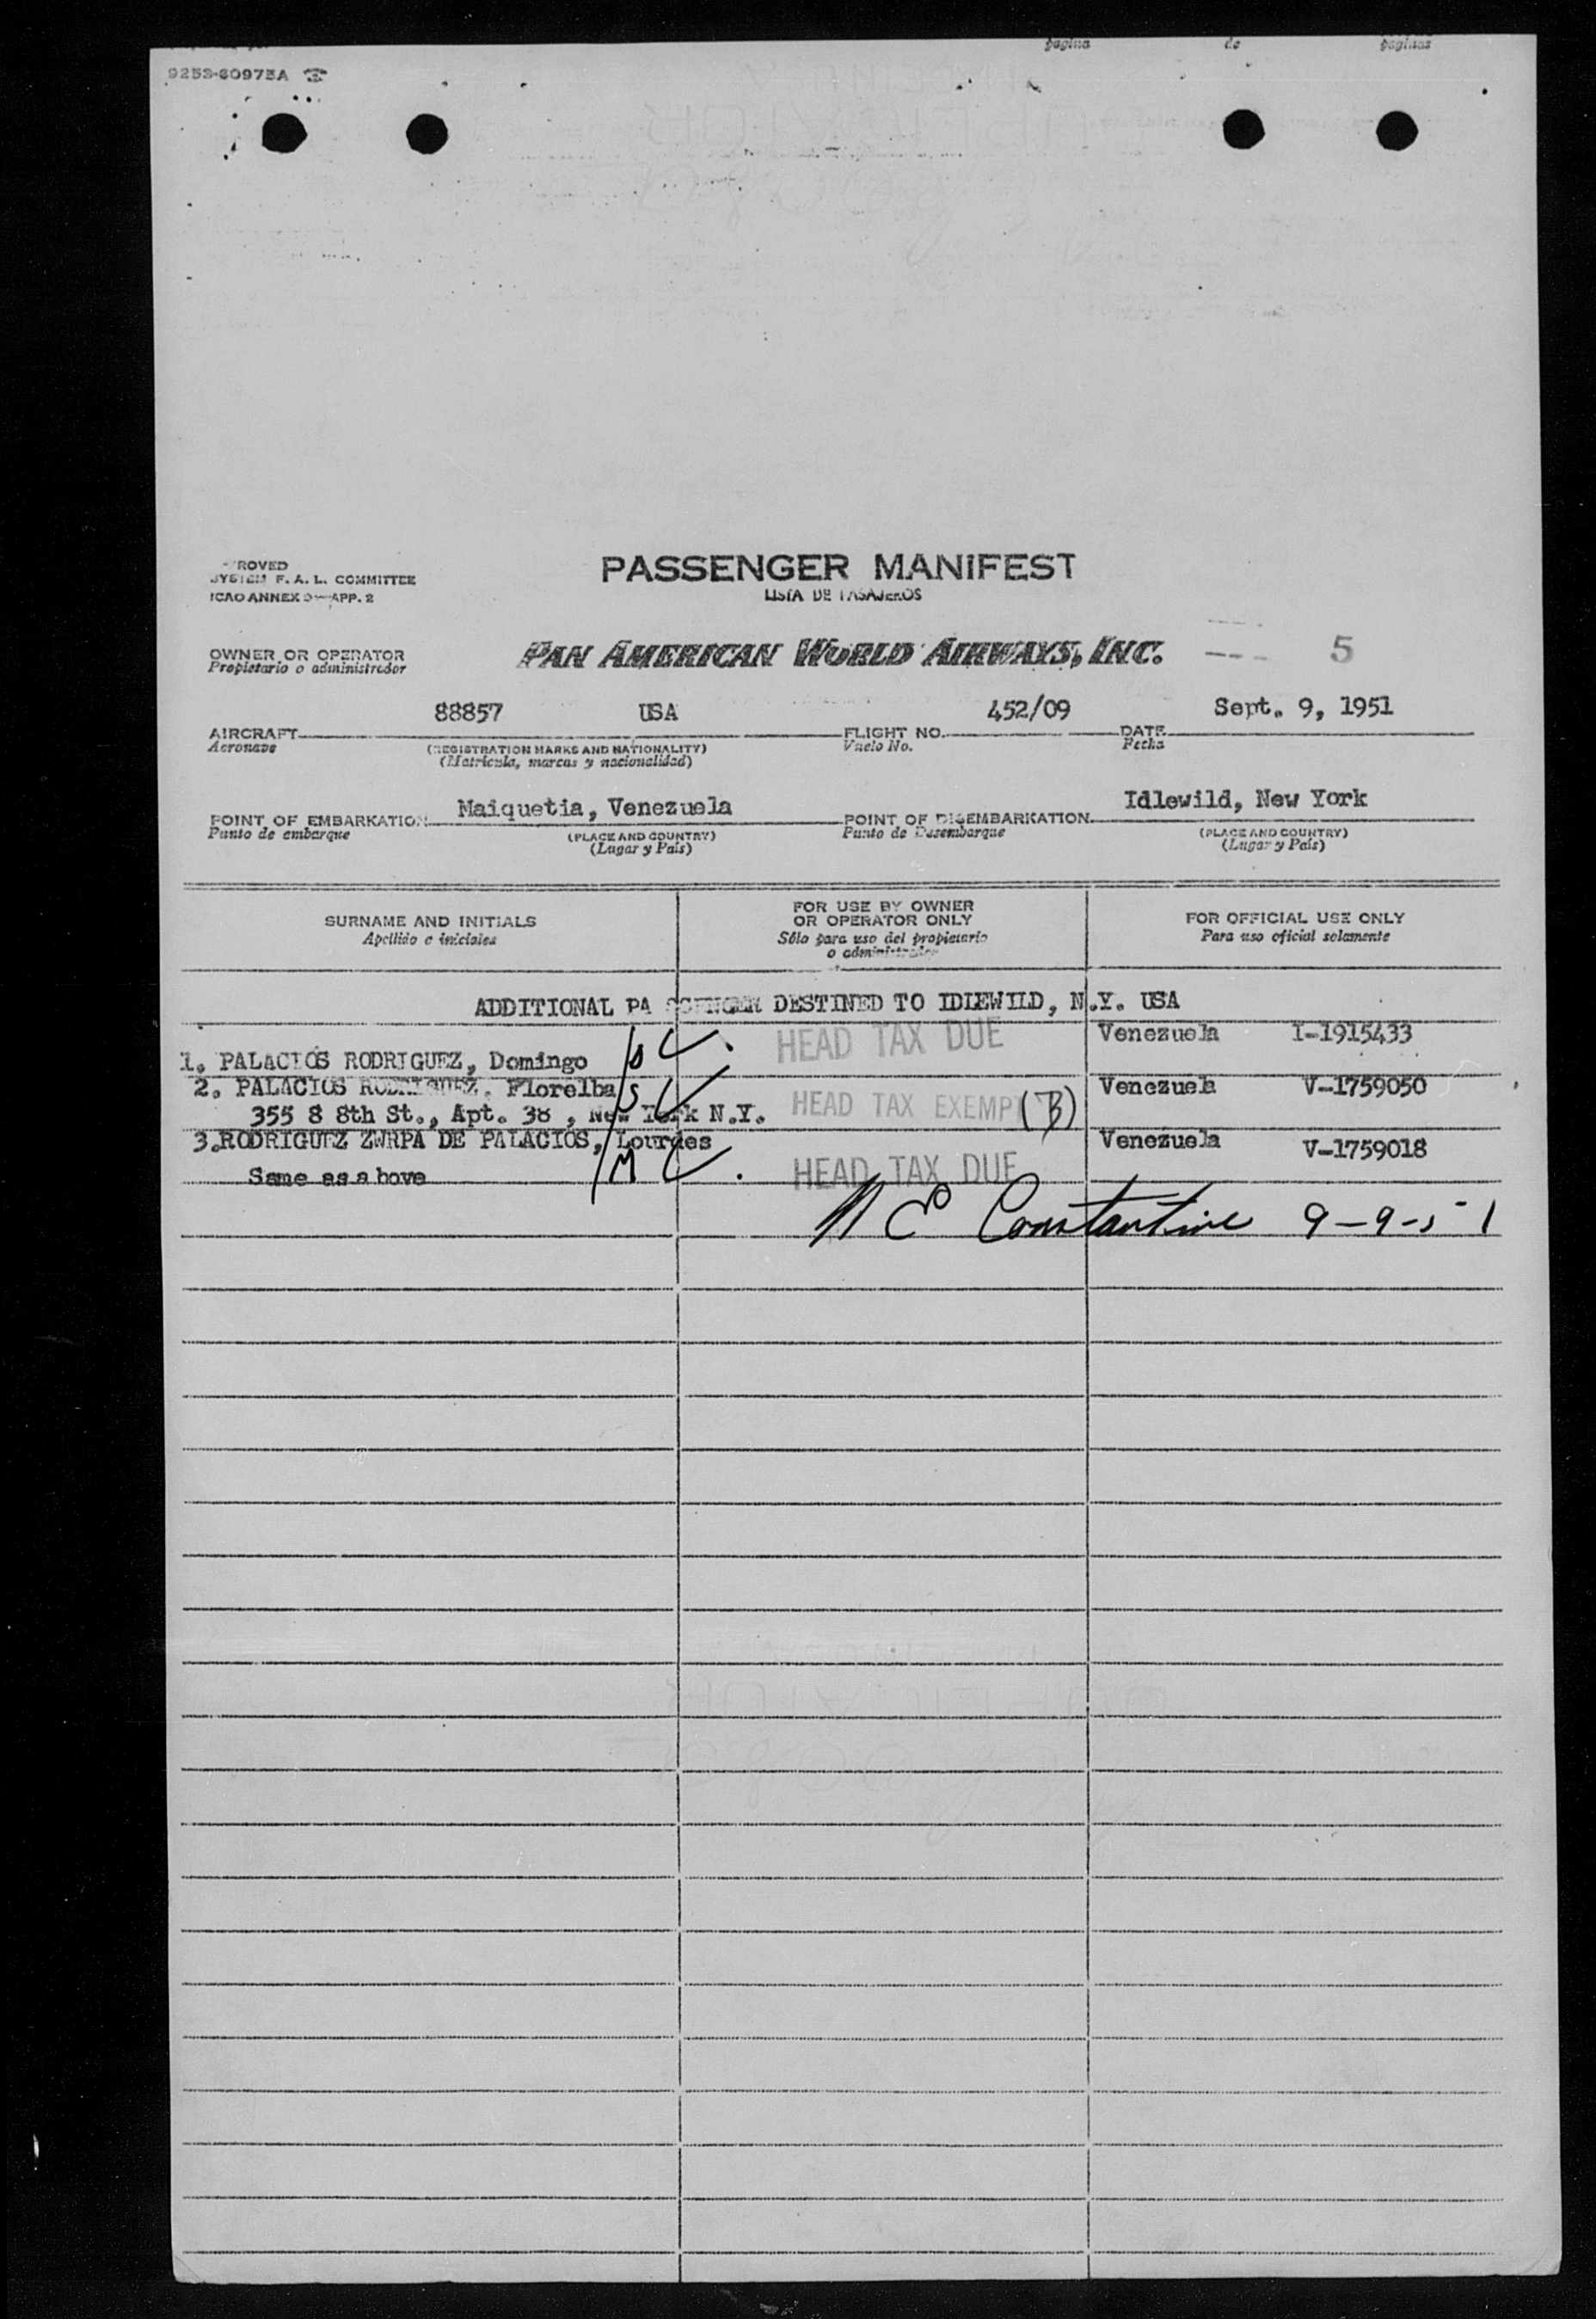 página de páginas
9253-60975A
PASSENGER MANIFEST
LISTA DE PASAJEROS
ROVED
SYSTEM F. A. L. COMMITTEE
ICAO ANNEX 9—APP. 2
OWNER OR OPERATOR
Propietario o administrador
PAN AMERICAN WORLD AIRWAYS, INC.
5
88857 USA 452/09 Sept. 9, 1951
AIRCRAFT FLIGHT NO. DATE
Aeronave (REGISTRATION MARKS AND NATIONALITY) Vuelo No. Fecha
(Matrícula, marcas y nacionalidad)
Maiquetia, Venezuela Idlewild, New York
POINT OF EMBARKATION POINT OF DISEMBARKATION
Punto de embarque (PLACE AND COUNTRY) Punto de Desembarque (PLACE AND COUNTRY)
(Lugar y País) (Lugar y País)
SURNAME AND INITIALS
Apellido e iniciales
FOR USE BY OWNER
OR OPERATOR ONLY
Sólo para uso del propietario
o administrador
FOR OFFICIAL USE ONLY
Para uso oficial solamente
ADDITIONAL PA SSENGER DESTINED TO IDLEWILD, N.Y. USA
1. PALACIOS RODRIGUEZ, Domingo HEAD TAX DUE Venezuela I-1915433
2. PALACIOS RODRIGUEZ, Florelba S Venezuela V-1759050
355 8 8th St., Apt. 38 , New York N.Y. HEAD TAX EXEMPT (B)
3.RODRIGUEZ ZWRPA DE PALACIOS, Lourdes Venezuela V-1759018
Same as a bove M HEAD TAX DUE
N E Constantine 9-9-51